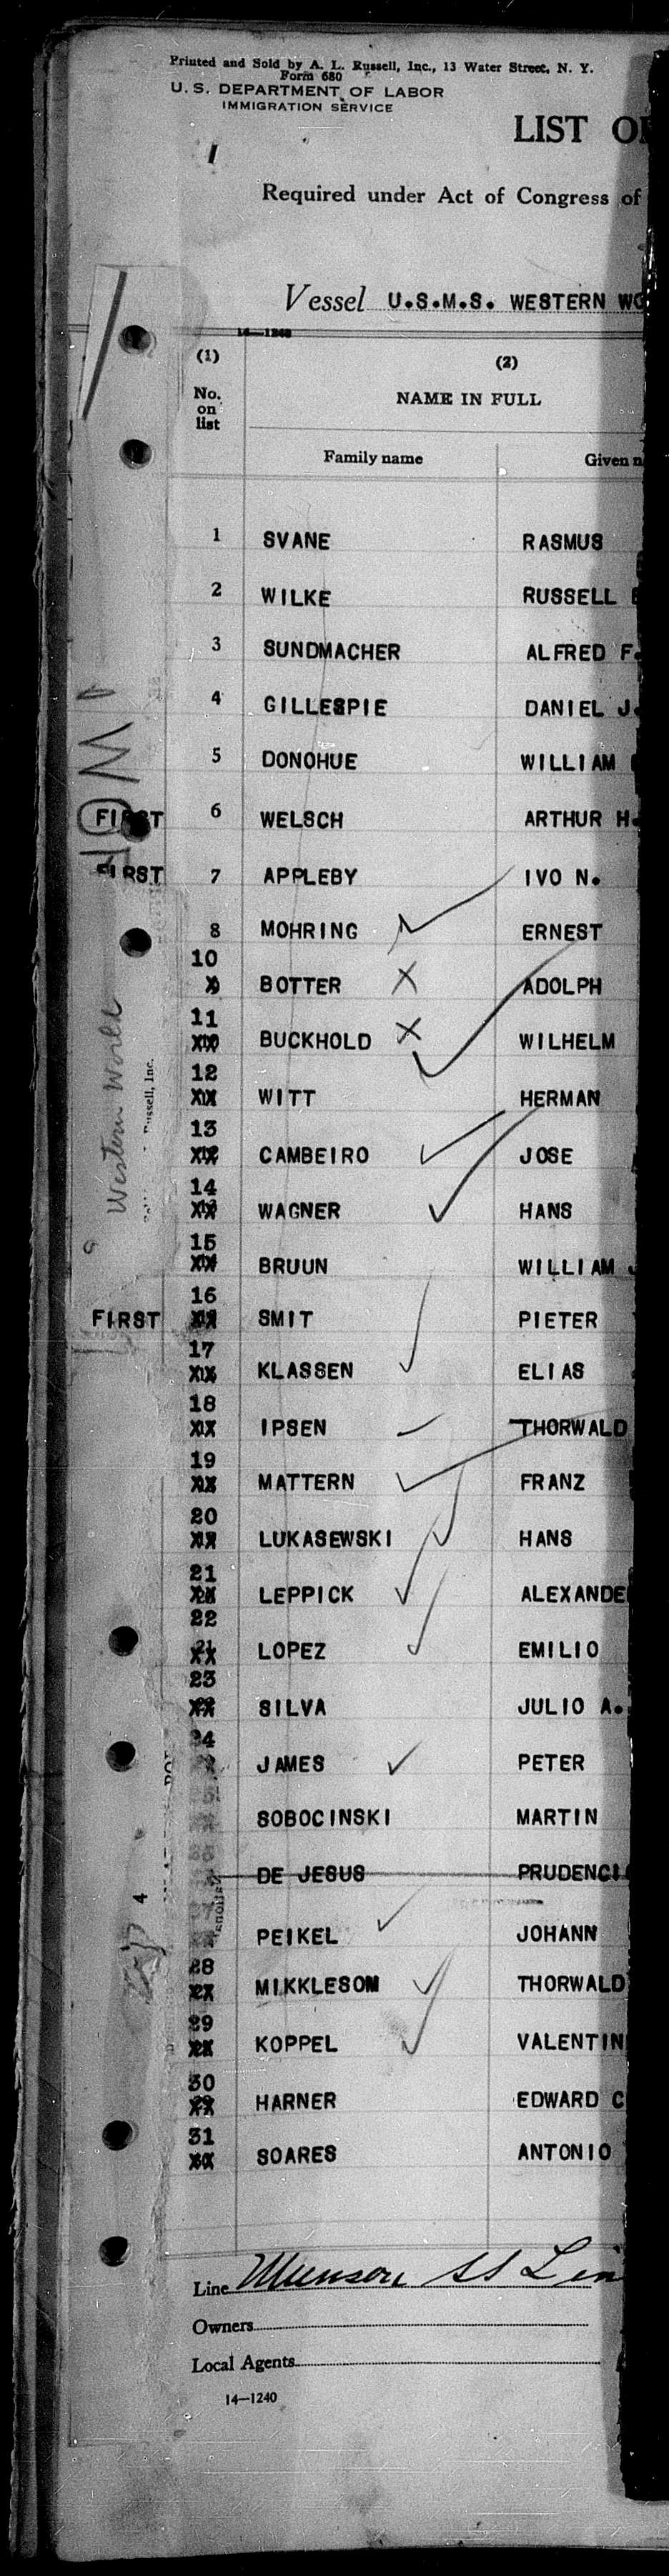 Printed and Sold by A. L. Russell, Inc., 13 Water Street, N. Y.
Form 680
U. S. DEPARTMENT OF LABOR
IMMIGRATION SERVICE
1
LIST
Required under Act of Congress of
Vessel U.S.M.S. WESTERN
14—1240
(1) (2)
No. on list NAME IN FULL
Family name Given
1 SVANE RASMUS
2 WILKE RUSSELL
3 SUNDMACHER ALFRED F.
4 GILLESPIE DANIEL J.
5 DONOHUE WILLIAM
FIRST 6 WELSCH ARTHUR H.
FIRST 7 APPLEBY IVO N.
8 MOHRING ERNEST
10 BOTTER X ADOLPH
11 BUCKHOLD X WILHELM
12 WITT HERMAN
13 CAMBEIRO JOSE
14 WAGNER HANS
15 BRUUN WILLIAM
FIRST 16 SMIT PIETER
17 KLASSEN ELIAS
18 IPSEN THORWALD
19 MATTERN FRANZ
20 LUKASEWSKI HANS
21 LEPPICK ALEXANDE
22 LOPEZ EMILIO
23 SILVA JULIO A.
24 JAMES PETER
SOBOCINSKI MARTIN
DE JESUS PRUDENCI
PEIKEL JOHANN
28 MIKKLESOM THORWALD
29 KOPPEL VALENTIN
30 HARNER EDWARD C
31 SOARES ANTONIO
Western World
Russell, Inc.
4
Line Munson SS Lin
Owners
Local Agents
14—1240